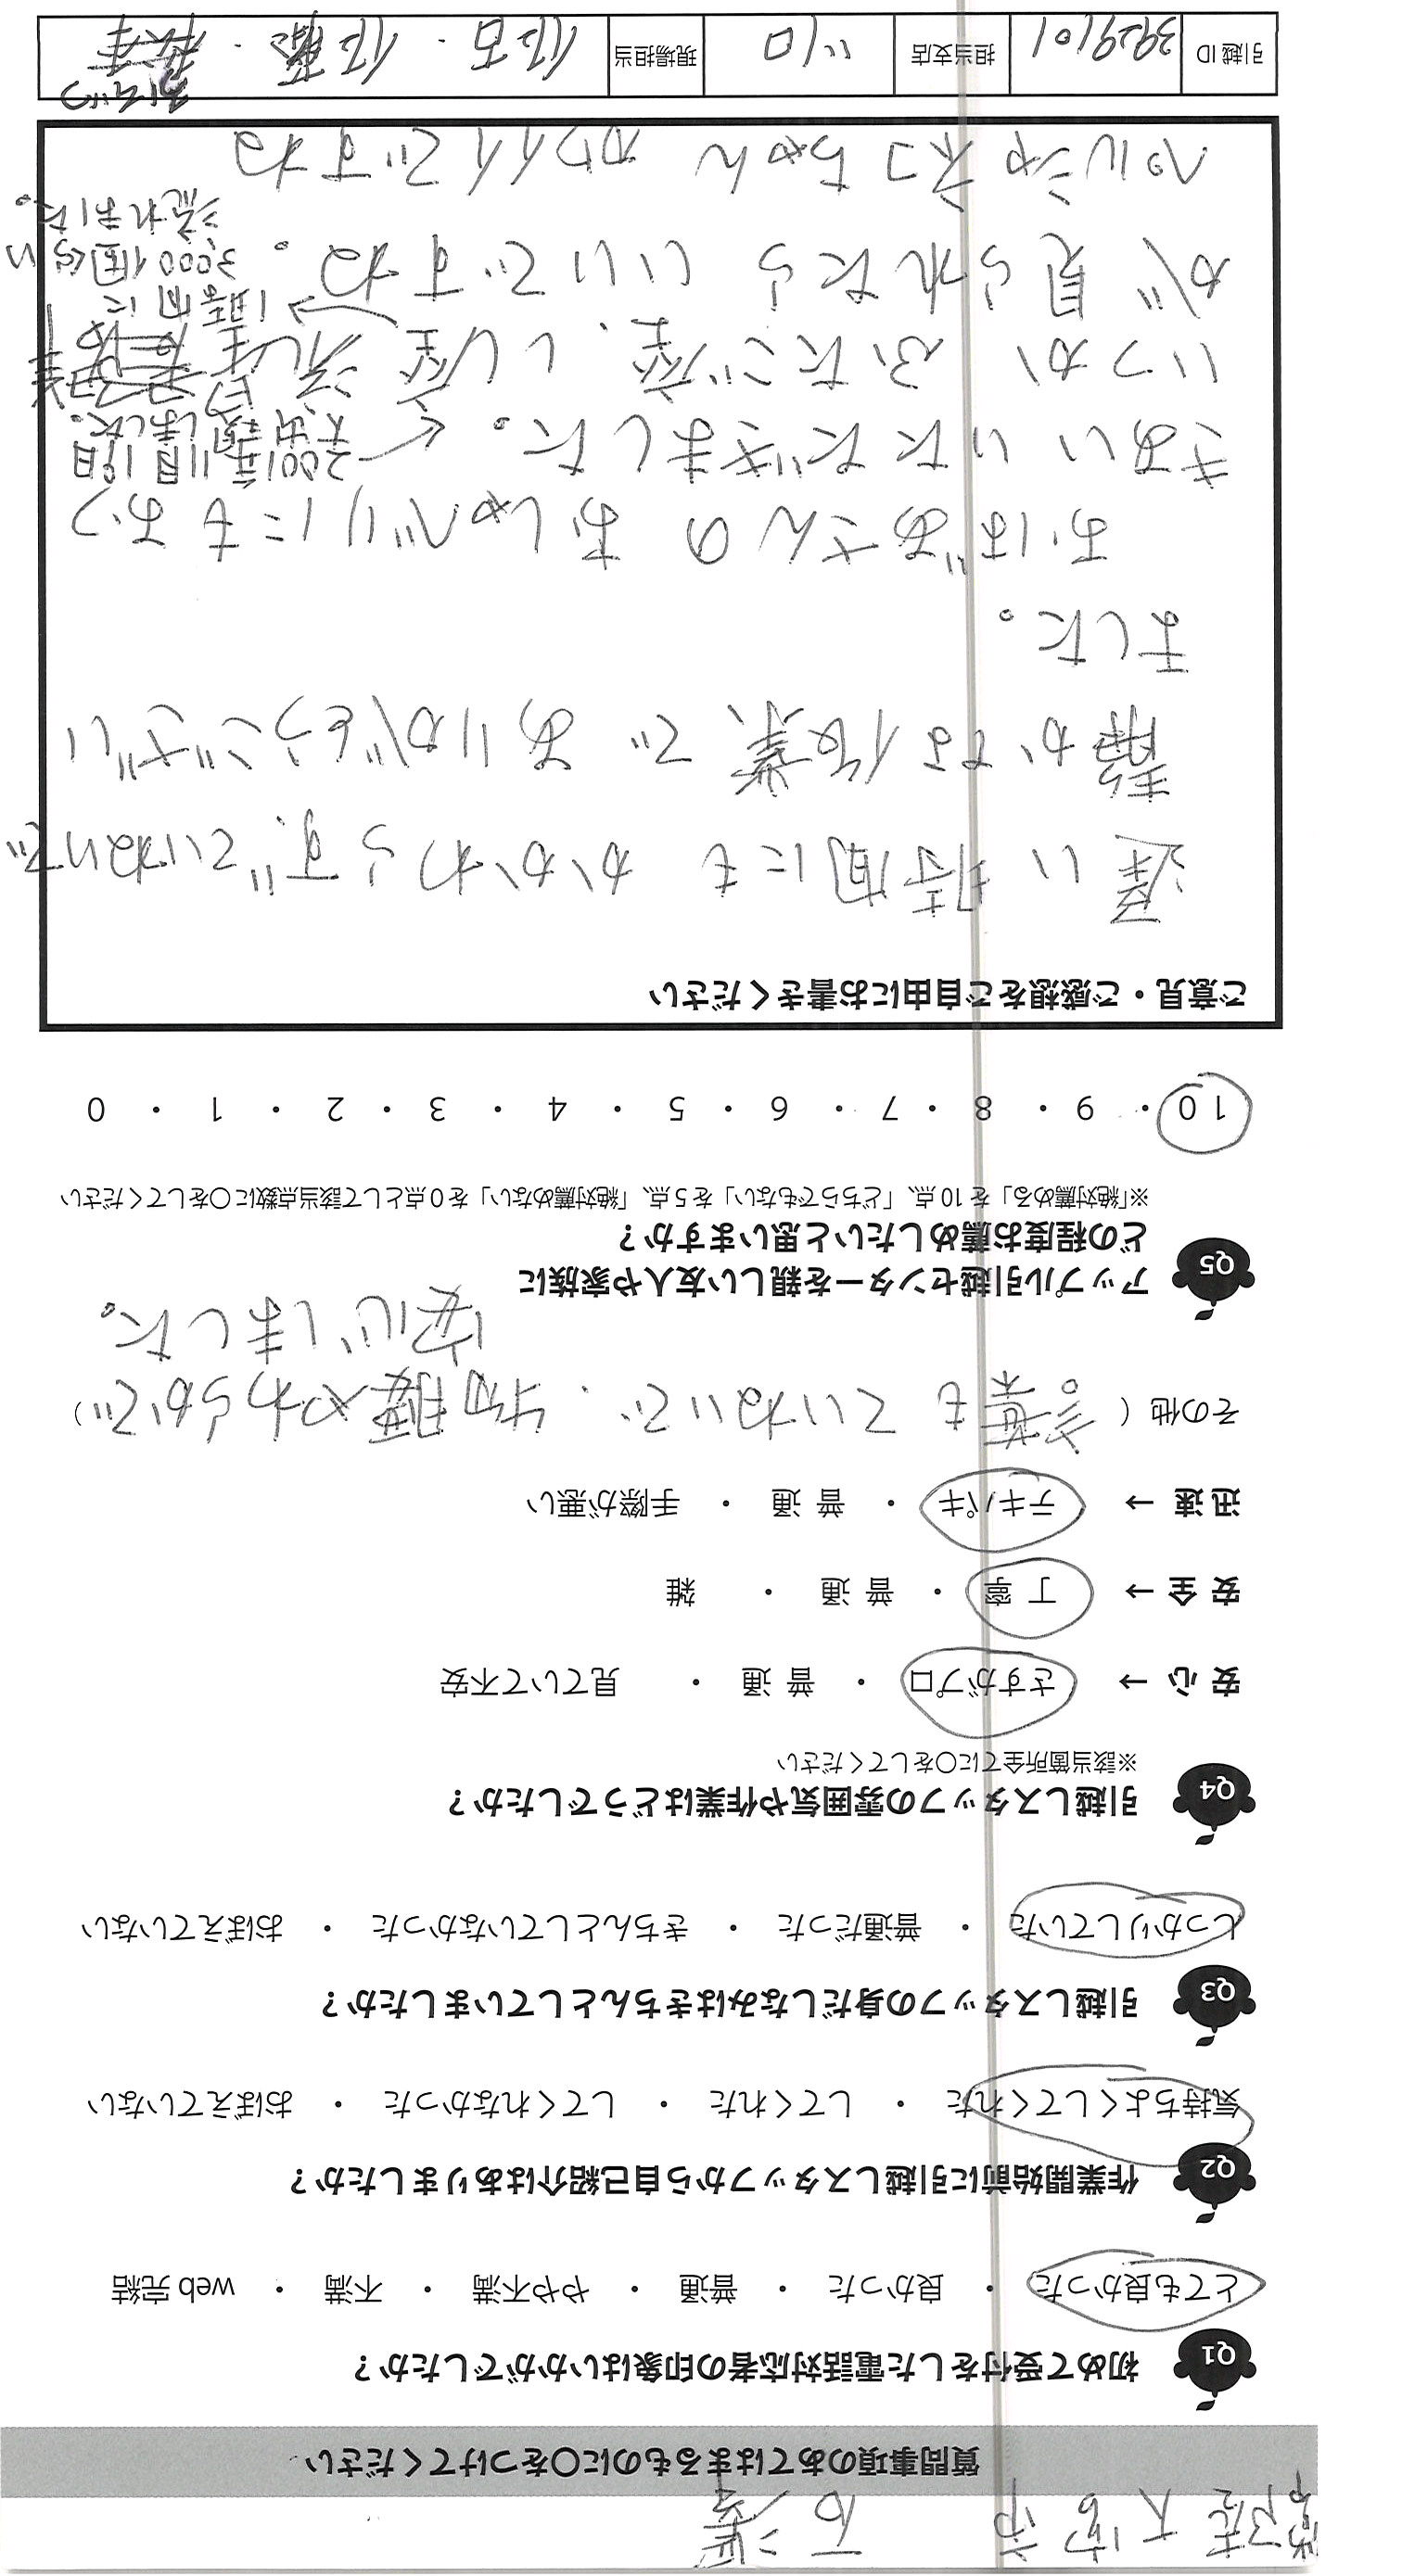 常陸大宮市 石澤
質問事項のあてはまるものに〇をつけてください
Q1 初めて受付をした電話対応者の印象はいかがでしたか？
とても良かった ・ 良かった ・ 普通 ・ やや不満 ・ 不満 ・ web 完結
Q2 作業開始前に引越しスタッフから自己紹介はありましたか？
気持ちよくしてくれた ・ してくれた ・ してくれなかった ・ おぼえていない
Q3 引越しスタッフの身だしなみはきちんとしていましたか？
しっかりしていた ・ 普通だった ・ きちんとしていなかった ・ おぼえていない
Q4 引越しスタッフの雰囲気や作業はどうでしたか？
※該当箇所全てに〇をしてください
安心 → さすがプロ ・ 普通 ・ 見ていて不安
安全 → 丁寧 ・ 普通 ・ 雑
迅速 → テキパキ ・ 普通 ・ 手際が悪い
その他（ 言葉も ていねいで、物腰やわらかで ）
安心しました。
Q5 アップル引越センターを親しい友人や家族に
どの程度お薦めしたいと思いますか？
※「絶対薦める」を 10 点、「どちらでもない」を 5 点、「絶対薦めない」を 0 点として該当点数に〇をしてください
10 ・ 9 ・ 8 ・ 7 ・ 6 ・ 5 ・ 4 ・ 3 ・ 2 ・ 1 ・ 0
ご意見・ご感想をご自由にお書きください
遅い時間にも かかわらず、ていねいで
静かな作業で ありがとうござい
ました。
おばあさんの おしゃべりにもおつ
きあいいただきました。
2001年11月19日
大出現しました。
いつか ふたご座、しし座 流星群
が 見られたら いいですね。
1時間に
3,000個ぐらい
流れました。
ペルシャネコちゃん カワイイですね
引越 ID 3929101 担当支店 川口 現場担当 住吉・佐藤・